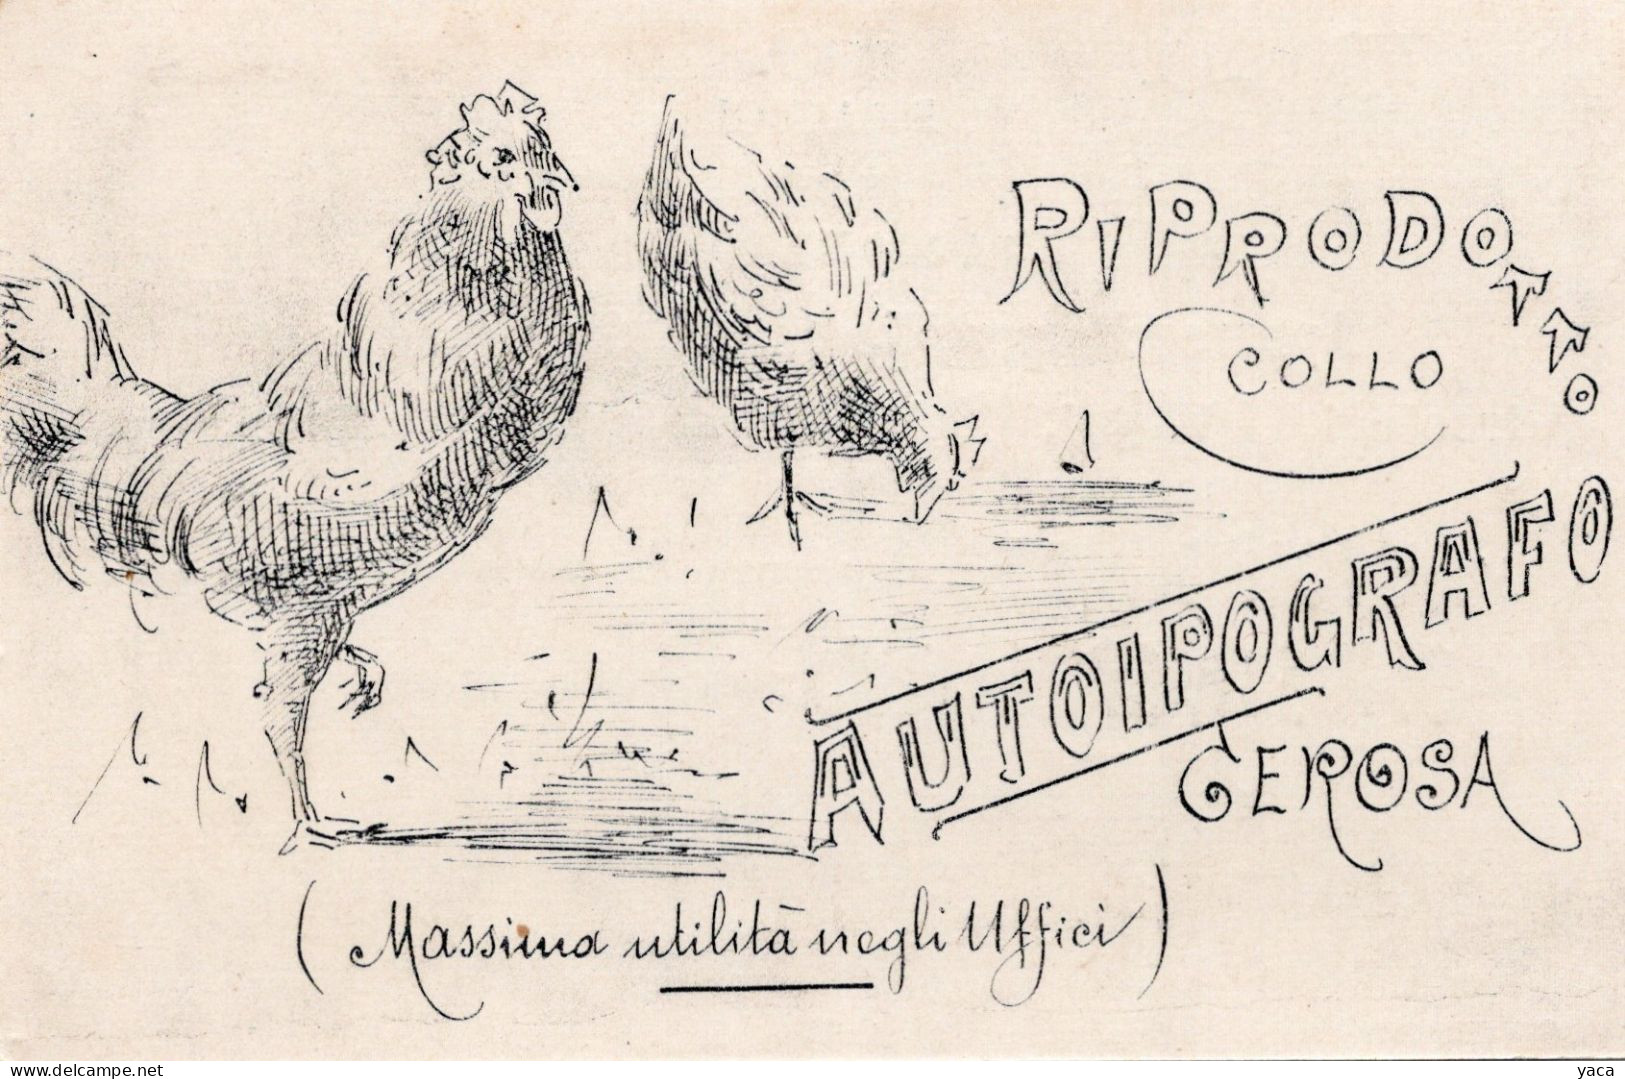 RIPRODOTTO
COLLO
AUTOIPOGRAFO
GEROSA
(Massima utilità negli Uffici)
www.delcampe.net
yaca